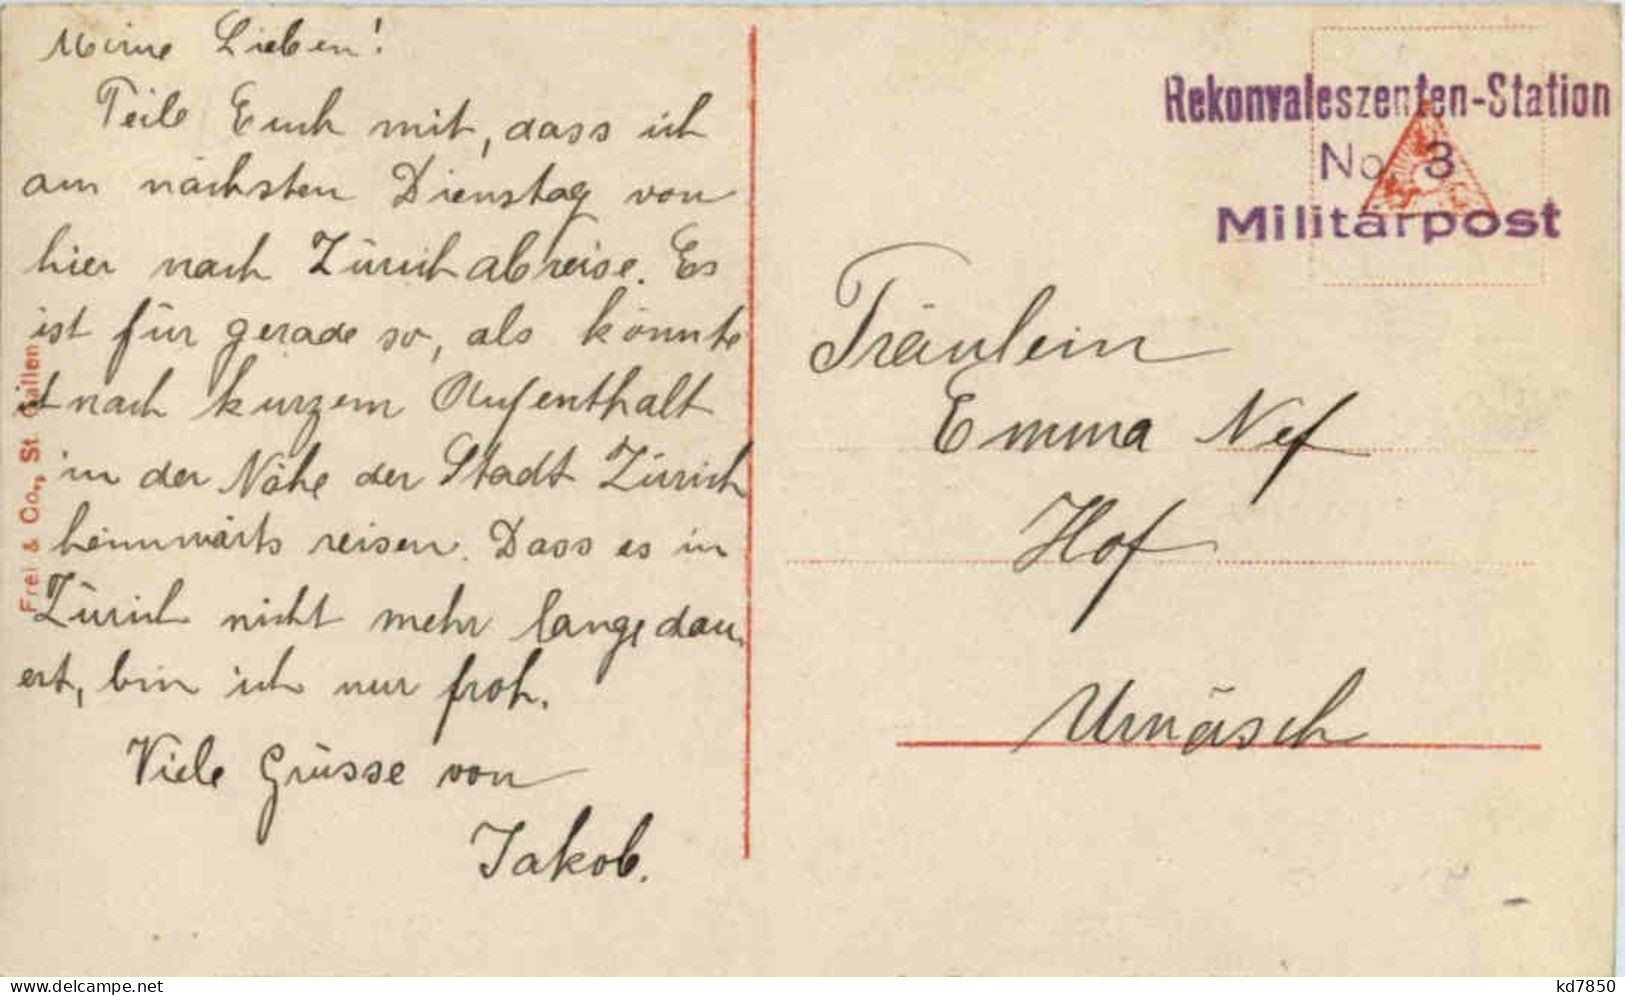 Meine Lieben!
Teile Euch mit, dass ich
am nächsten Dienstag von
hier nach Zürich abreise. Es
ist für gerade so, als könnte
nach kurzem Aufenthalt
in der Nähe der Stadt Zürich
heimwärts reisen. Dass es in
Zürich nicht mehr lange dau-
ert, bin ich nur froh.
Viele Grüsse von
Jakob.
Frei & Co., St. Gallen
Rekonvaleszenten-Station
No. 3
Militärpost
Fräulein
Emma Nef
Hof
Urnäsch
www.delcampe.net
kd7850